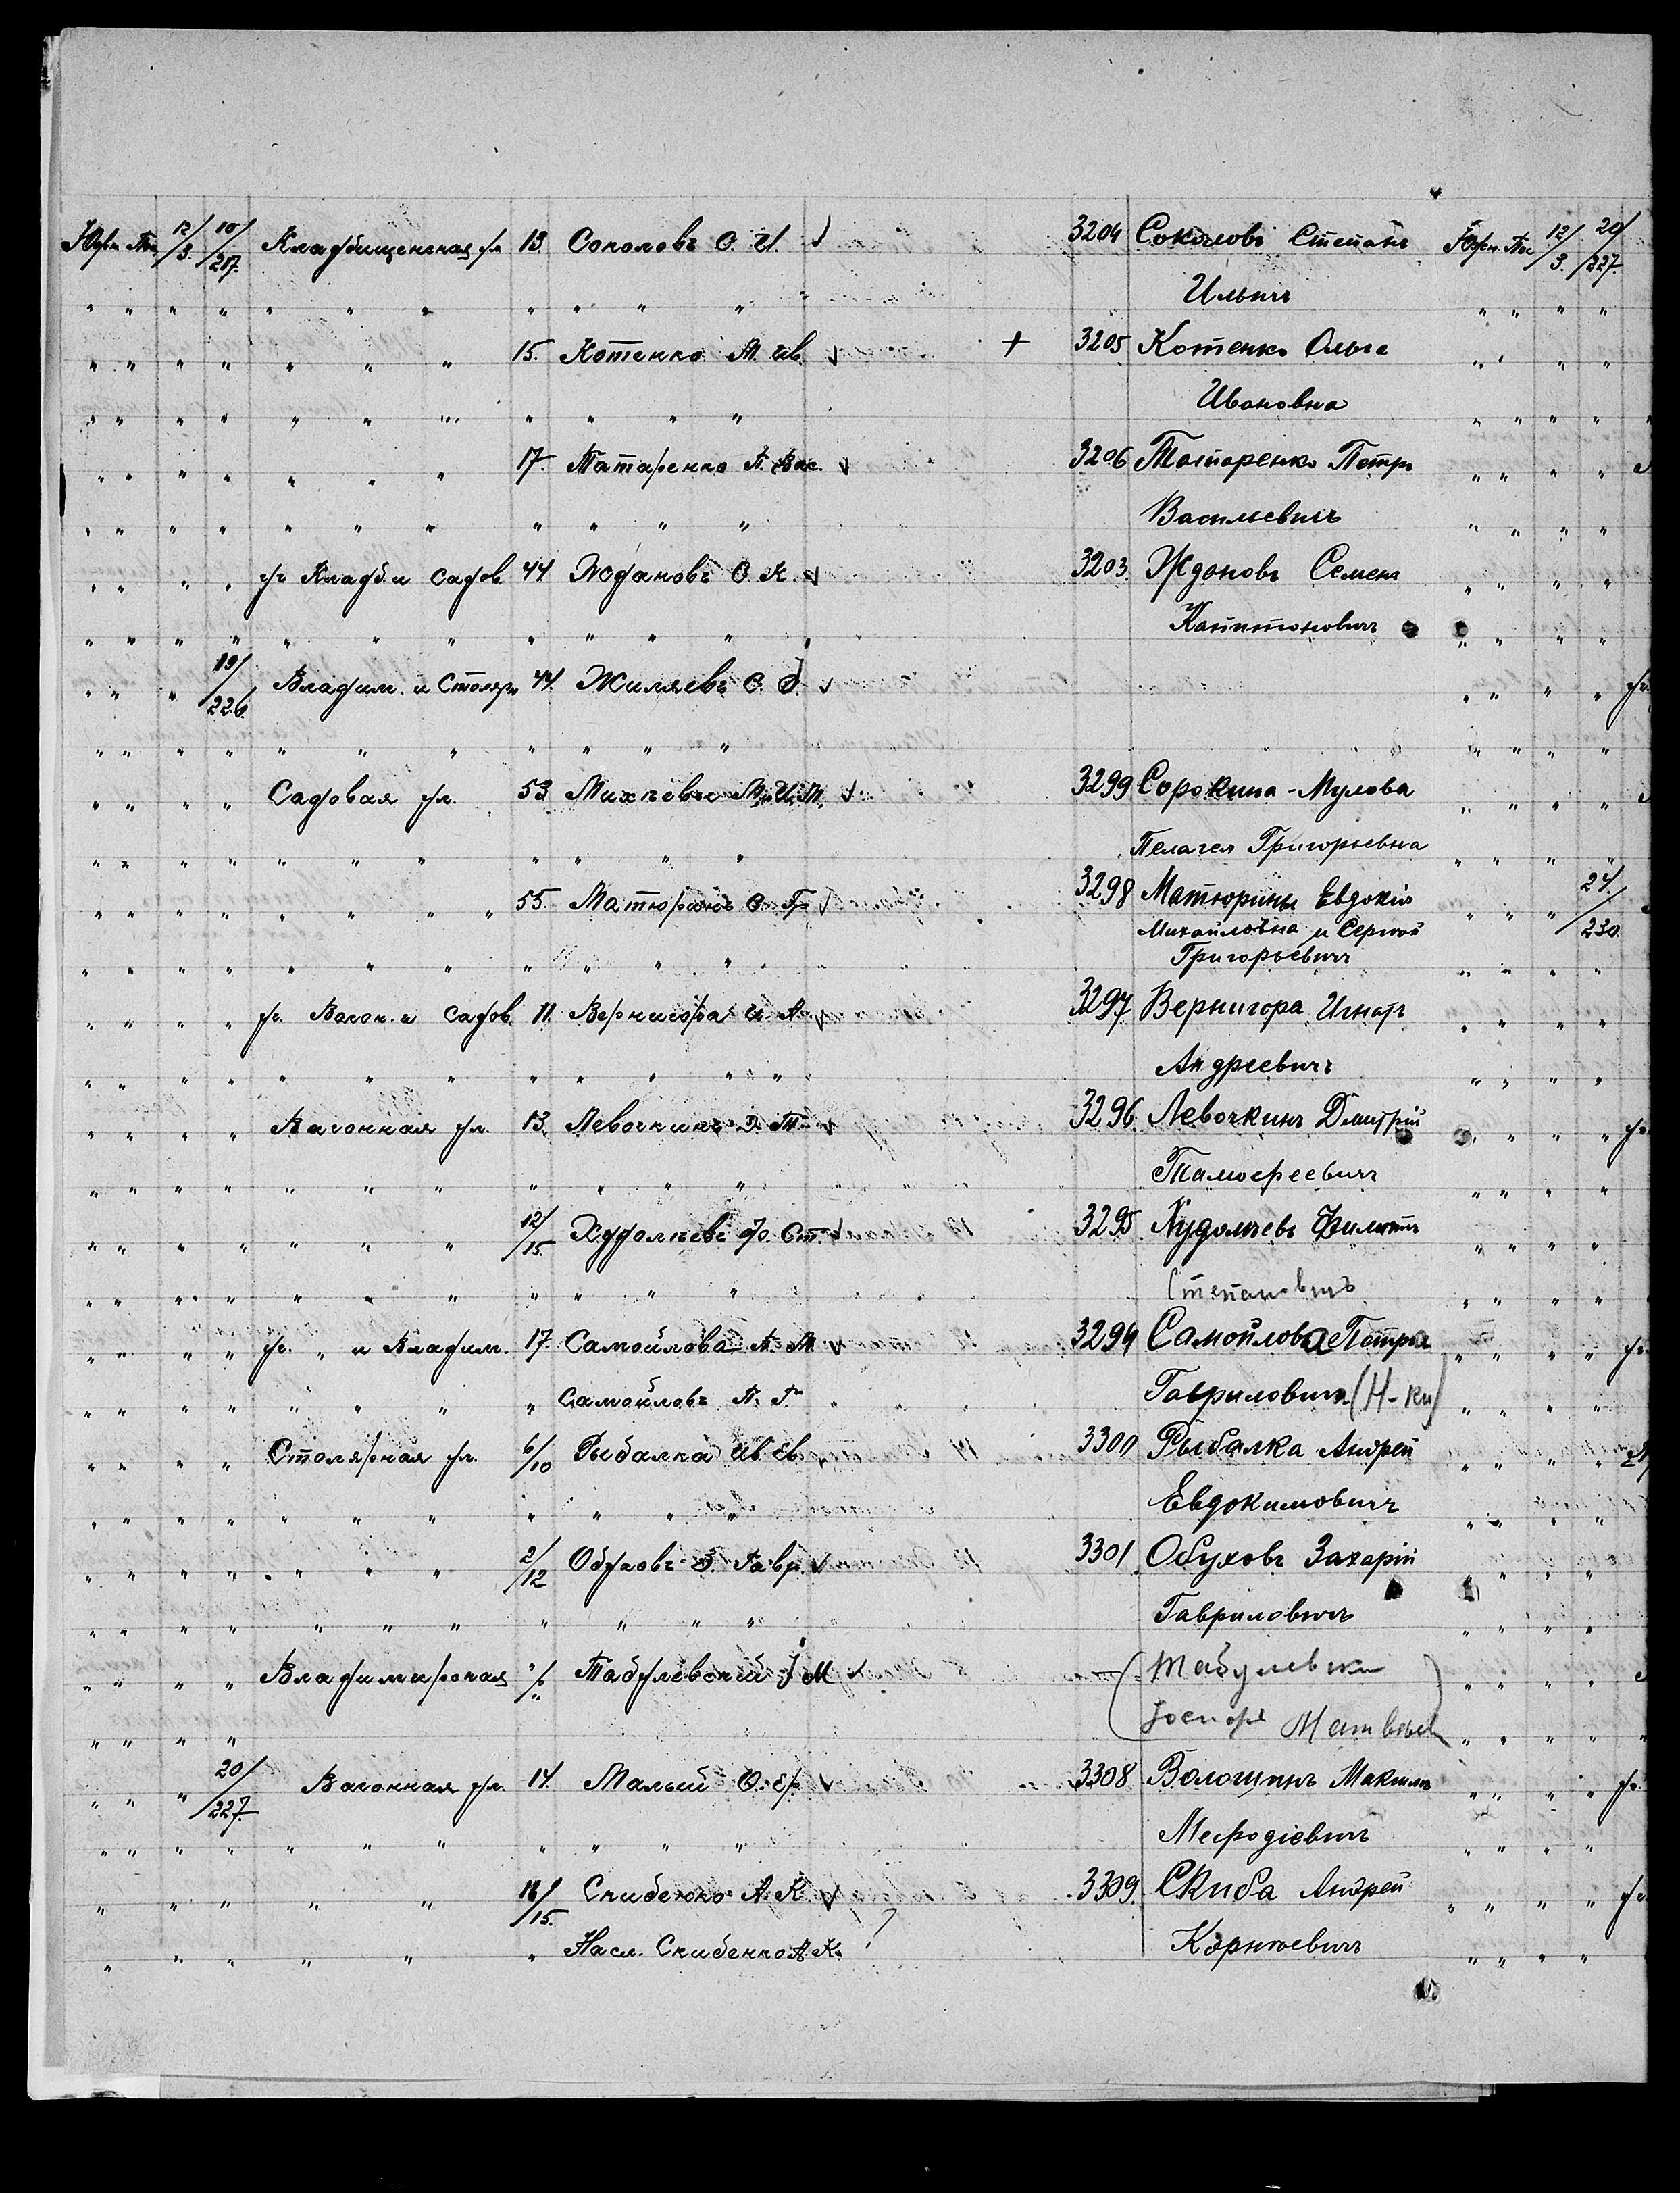 12/3. 10/217. Кладбищенская ул 13. Соколовъ С. И. 3204 Соколовъ Степанъ 12/3. 20/227.
" " " " " " " " " " " Ильичъ " " " "
" " " " " " " 15. Котенко Ив. + 3205 Котенко Ольга " " " "
" " " " " " " " " " " Ивановна " " " "
" " " " " " " 17. Татаренко П. Вас. 3206 Татаренко Петръ " " " "
" " " " " " " " " " " Васильевичъ " " " "
" " " " уг Кладб. и Садов. 44 Ждановъ С. К. 3203. Ждановъ Семенъ " " " "
" " " " " " " " " " " Капитоновичъ " " " "
" " " 19/226. Владим. и Столярн 44. Жиляевъ С. " " " "
" " " " " " " " " " " " " " "
" " " " Садовая ул. 53 Михѣевы М. и М. 3299 Сорокина-Мулова " " " "
" " " " " " " " " " " Пелагея Григорьевна " " " "
" " " " " " " " 55. Матюринъ С. Гр 3298 Матюрины Евдокія " " " 24/230.
Михайловна и Сергѣй
" " " " " " " " " " " Григорьевичъ " " " "
" " " " уг. Вагон. и Садов. 11. Вернигора И. А. 3297 Вернигора Игнатъ " " " "
" " " " " " " " " " " " Андреевичъ " " " "
" " " " Вагонная ул. 13. Левочкинъ Д. Т. 3296. Левочкинъ Дмитрій " " " " уг.
" " " " " " " " " " " Тимофеевичъ " " " "
" " " " " " " 12/15. Худолѣевъ Ф. Ст. 3295. Худолѣевъ Филиппъ " " " "
" " " " " " " " " " " Степановичъ " " " "
" " " " уг. " и Владим. 17. Самойлова А. М. 3294 Самойлова Петра " " " " уг.
" " " " " " " " Самойловъ П. Г. Гавриловича (Н-ки) " " " "
" " " " Столярная ул. 6/10 Рыбалка Ив. Ев. 3300 Рыбалка Андрей " " " "
" " " " " " " " " " " Евдокимовичъ " " " "
" " " " " " " 2/12 Обуховъ З. Гавр. 3301 Обуховъ Захарій " " " "
" " " " " " " " " " " Гавриловичъ " " " "
" " " " Владимирская "/" Табулевскій І М (Табулевски " " " "
" " " " Матвѣев) " " " " "
" " " 20/227. Вагонная ул. 14. Малый О. Еф. 3308 Волошинъ Максимъ " " " " уг.
" " " " " " " " " " " Мефодіевичъ " " " "
" " " " " 18/15. Скибенко А. К. 3309. Скиба Андрей " " " " уг.
" " " " " " Насл. Скибенко А. К. ? Корнѣевичъ " " " "